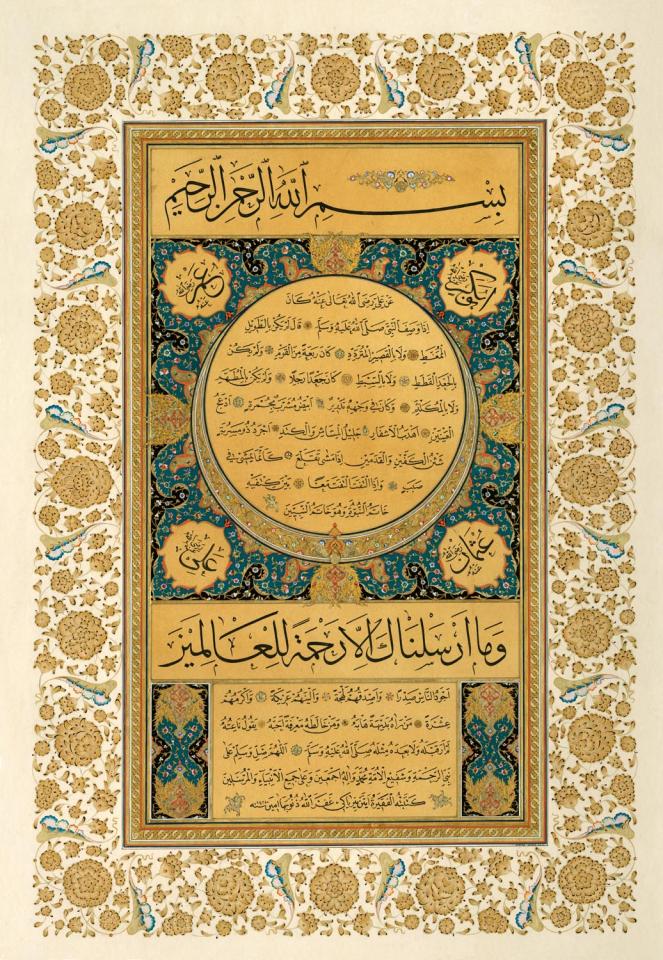 بسم الله الرحمن الرحيم
ابوبكر رضي الله عنه
عمر رضي الله عنه
عن علي رضي الله تعالى عنه كان
اذا وصف النبي صلى الله عليه وسلم قال لم يكن بالطويل
الممغط ولا بالقصير المتردد كان ربعة من القوم ولم يكن
بالجعد القطط ولا بالسبط كان جعدا رجلا ولم يكن بالمطهم
ولا بالمكلثم وكان في وجهه تدوير ابيض مشرب بحمرة ادعج
العينين اهدب الاشفار جليل المشاش والكتد اجرد ذو مسربة
شثن الكفين والقدمين اذا مشى تقلع كانما يمشي في
صبب واذا التفت التفت معا بين كتفيه
خاتم النبوة وهو خاتم النبيين
عثمان رضي الله عنه
علي رضي الله عنه
وما ارسلناك الا رحمة للعالمين
اجود الناس صدرا واصدقهم لهجة والينهم عريكة واكرمهم
عشرة من رآه بديهة هابه ومن خالطه معرفة احبه يقول ناعته
لم ار قبله ولا بعده مثله صلى الله عليه وسلم اللهم صل وسلم على
نبي الرحمة وشفيع الامة محمد وآله اجمعين وعلى جميع الانبياء والمرسلين
كتبته الفقيرة غفر الله ذنوبها آمين